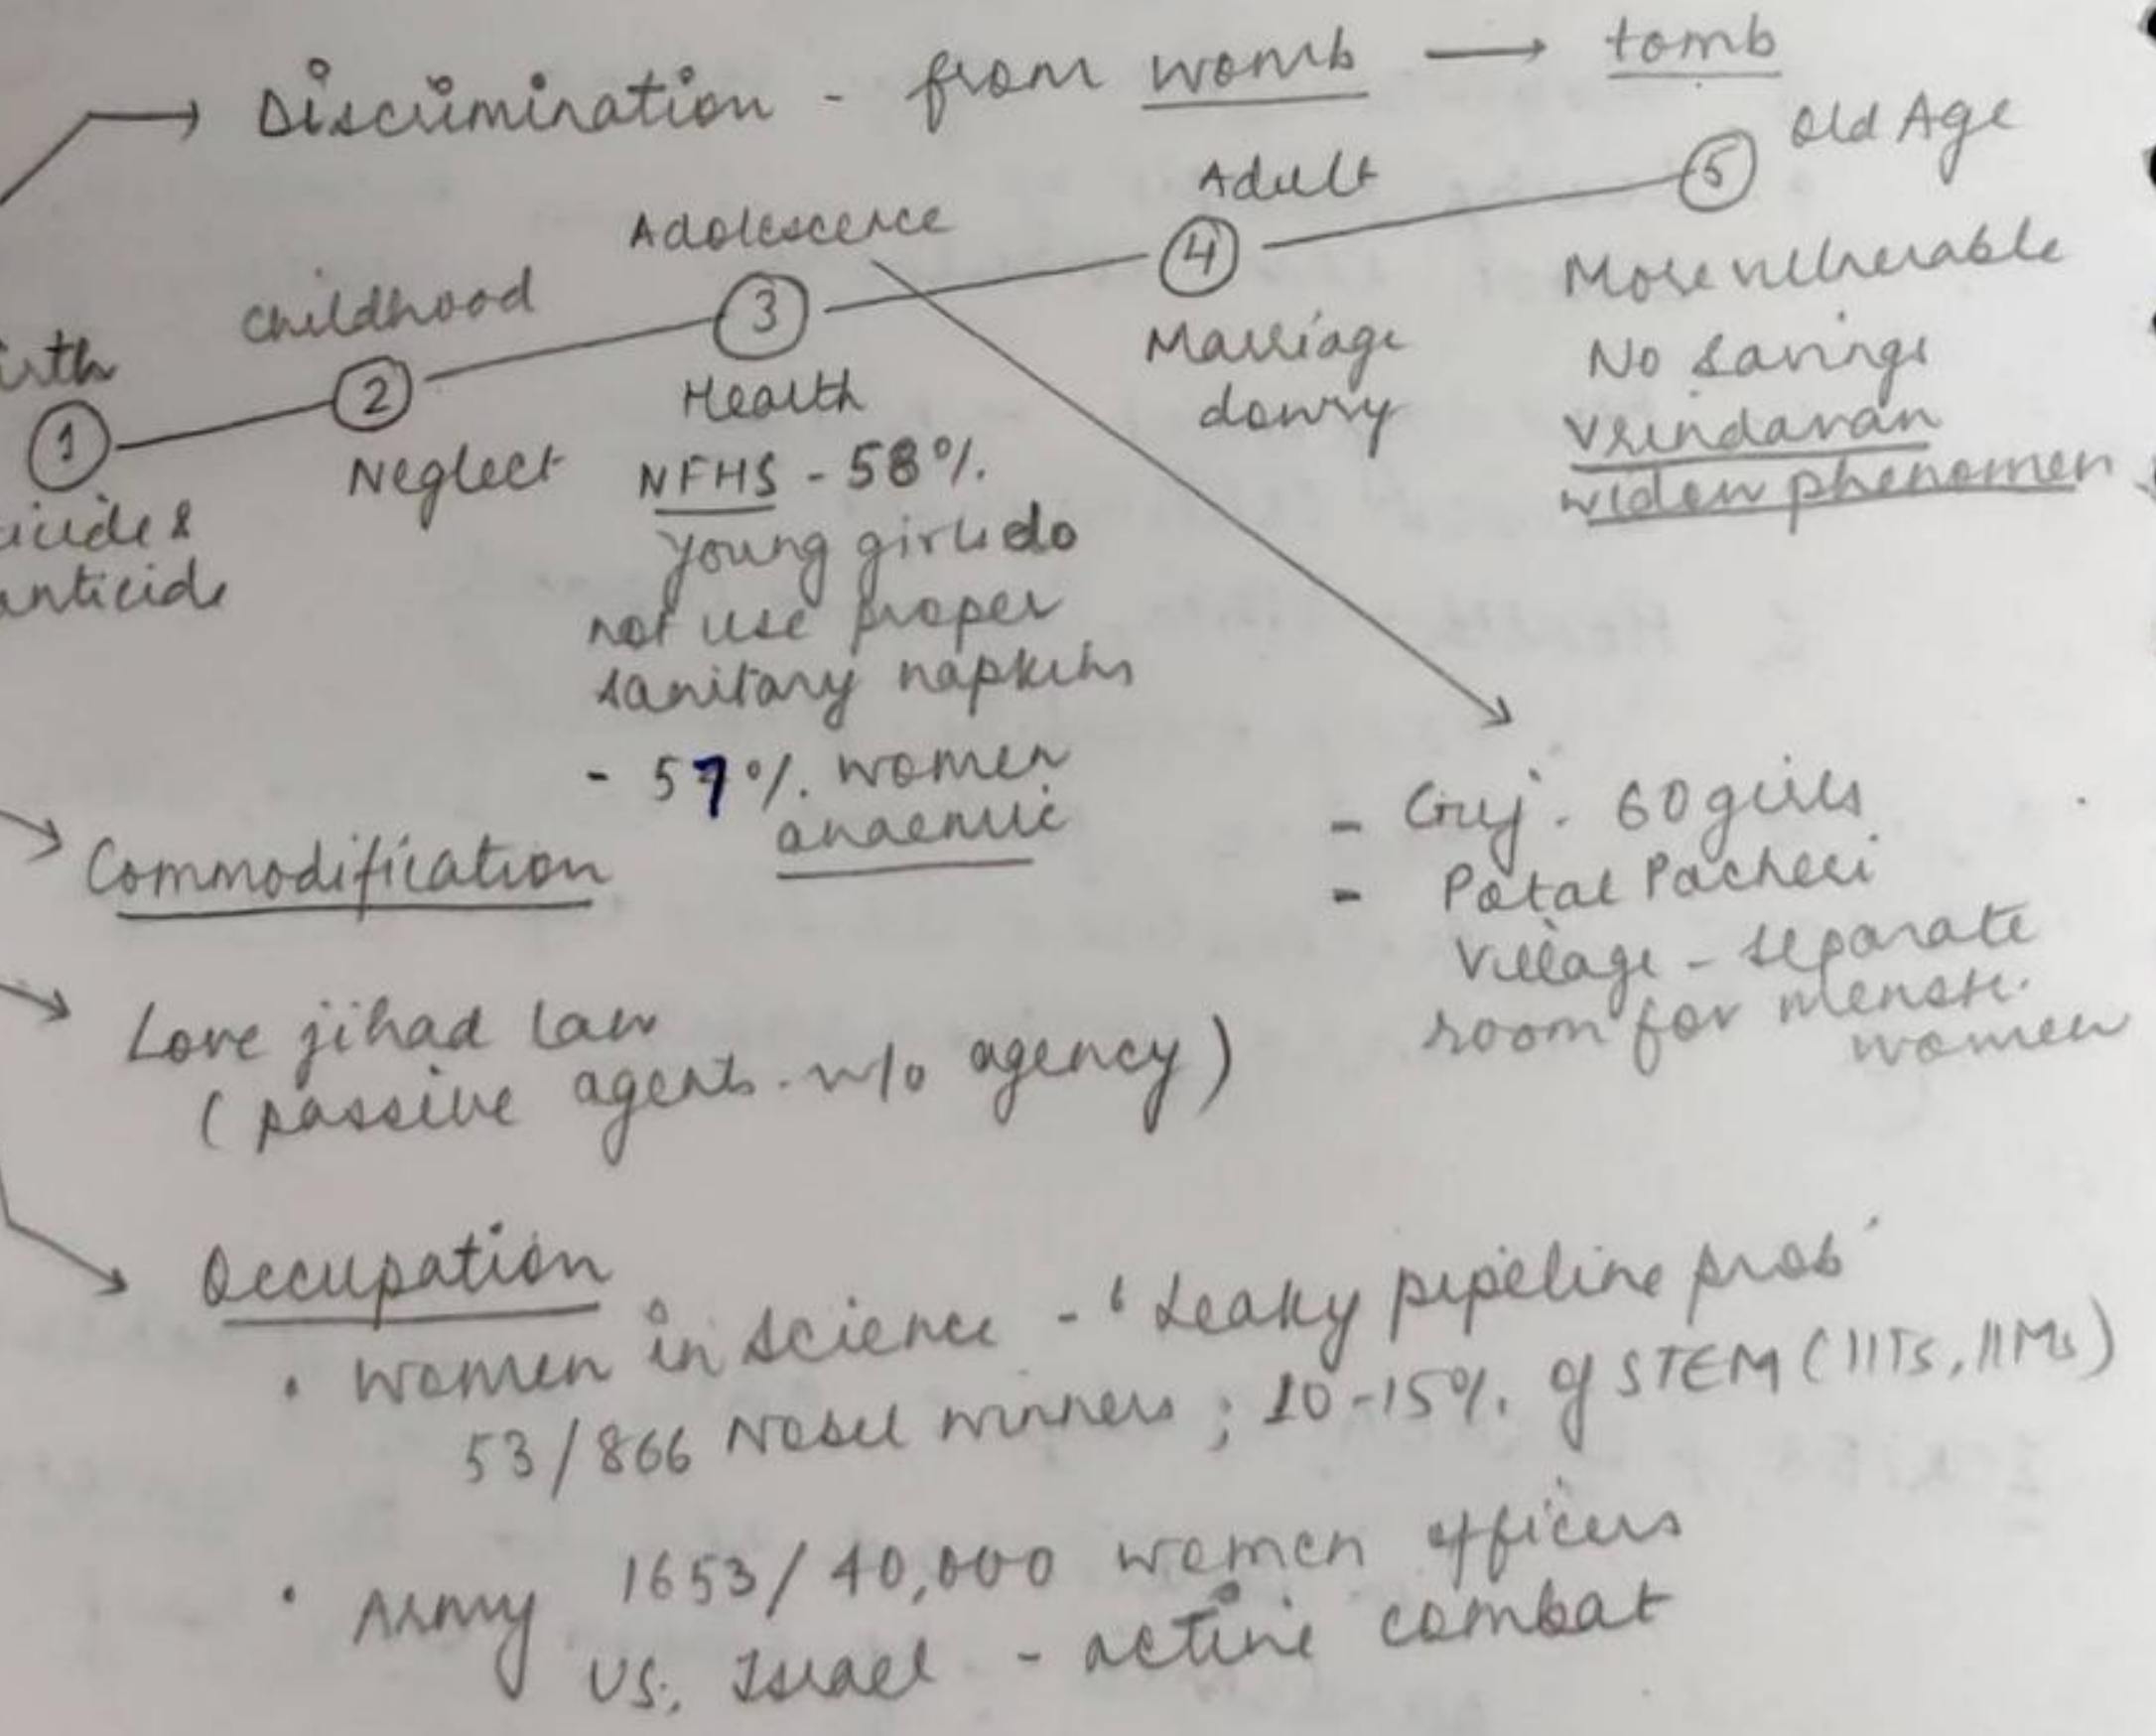 Discrimination - from womb → tomb
Old Age
Adult
Adolescence
Childhood
irth
1 2 3 4 5
icide &
anticide
Neglect
Health
NFHS - 58%.
young girls do
not use proper
sanitary napkins
- 57%. women
anaemic
Marriage
dowry
More vulnerable
No savings
Vrindavan
widow phenomen
- Guj. 60 girls
- Patal Pacheri
Village - separate
room for menstr.
women
Commodification
Love jihad law
(passive agents w/o agency)
Occupation
• Women in science - 'Leaky pipeline prob'
53/866 Nobel winners ; 10-15%. of STEM (IITs, IIMs)
• Army 1653/40,000 women officers
US, Israel - active combat